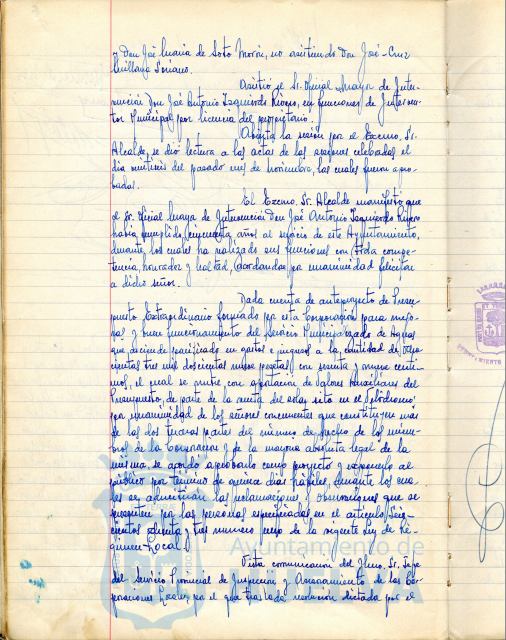 y Don José María de Soto Morón, no asistiendo Don José-Cruz
Quillana Soriano.
Asistió el Sr. Oficial Mayor de Inter-
vención Don José Antonio Izquierdo Rivero, en funciones de Interven-
tor Municipal por licencia del propietario.
Abierta la sesión por el Excmo. Sr.
Alcalde, se dió lectura a las actas de las sesiones celebradas el
día veintiseis del pasado mes de noviembre, las cuales fueron apro-
badas.
El Excmo. Sr. Alcalde manifestó que
el Sr. Oficial Mayor de Intervención Don José Antonio Izquierdo Rivero
había cumplido cincuenta años al servicio de este Ayuntamiento,
durante los cuales ha realizado sus funciones con toda compe-
tencia, honradez y lealtad, acordándose por unanimidad felicitar
a dicho señor.
Dada cuenta de anteproyecto de Presu-
puesto Extraordinario formado por esta Corporación para mejo-
ras y buen funcionamiento del Servicio Municipalizado de Aguas
que asciende panificado en gastos e ingresos a la cantidad de
cientas tres mil doscientas nueve pesetas con setenta y nueve centi-
mos, el cual se nutre con aportación de Valores Auxiliares del
Presupuesto, de parte de la venta del solar sito en el Velódromo,
por unanimidad de los señores concurrentes que constituyen más
de las dos terceras partes del número de hecho de los miem-
bros de la Corporación y de la mayoría absoluta legal de la
misma se acordó aprobarlo como proyecto y exponerlo al
público por término de quince días hábiles, durante los cua-
les se admitirán las reclamaciones y observaciones que se
presenten por las personas especificadas en el artículo seis-
cientos ochenta y tres número uno de la vigente Ley de Ré-
gimen Local.
Vista comunicación del Iltmo. Sr. Jefe
del Servicio Provincial de Inspección y Asesoramiento de las Cor-
poraciones Locales, en el que traslada resolución dictada por el
Ayuntamiento de